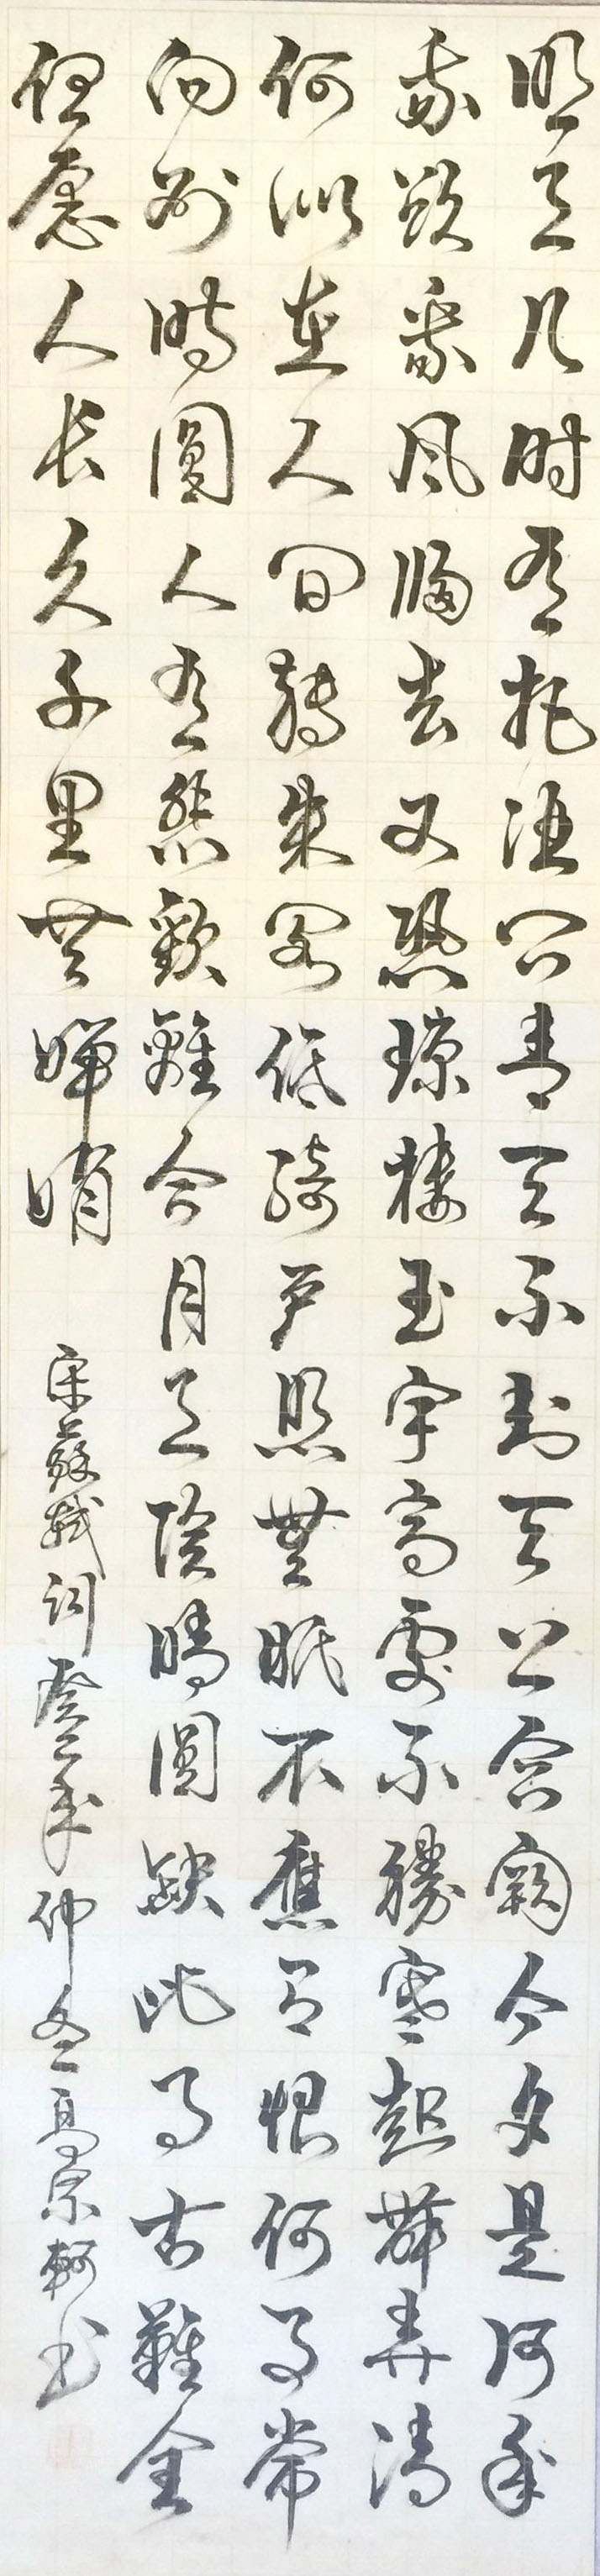 明月几时有把酒问青天不知天上宫阙今夕是何年
我欲乘风归去又恐琼楼玉宇高处不勝寒起舞弄清
何似在人间转朱阁低绮户照無眠不應有恨何事常
向别時圆人有悲歡離合月有陰晴圆缺此事古難全
但愿人长久千里共婵娟
宋蘇轼词癸年仲冬高宗轲书